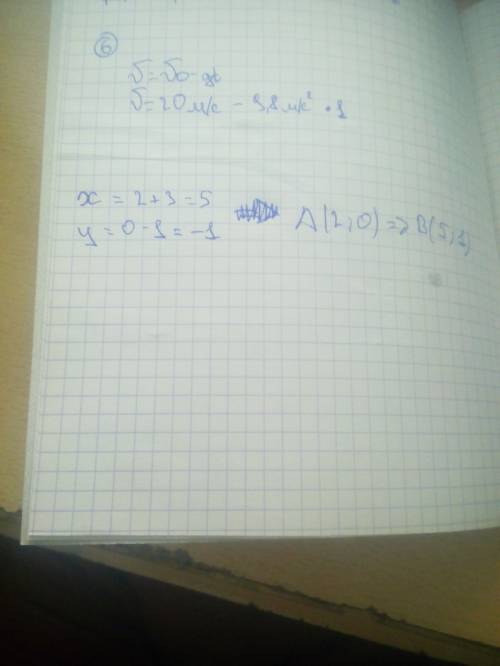 6
v = v0 - gt
v = 20 м/с - 9,8 м/с² • 1
x = 2 + 3 = 5
y = 0 - 1 = -1
A(2;0) => B(5;1)